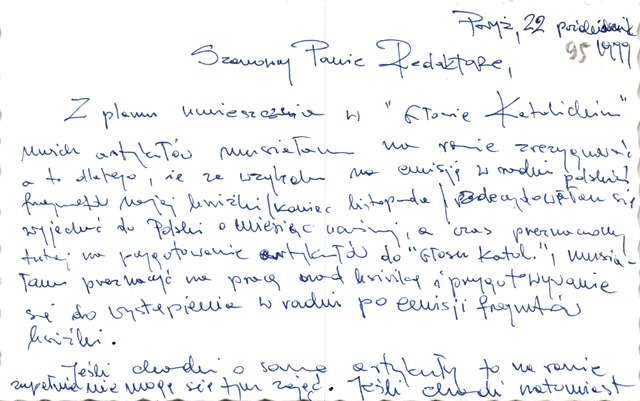 Paryż, 22 październik
95 1999
Szanowny Panie Redaktorze,
Z planu umieszczenia w "Głosie Katolickim"
moich artykułów musiałam na razie zrezygnować
a to dlatego, że ze względu na emisję w radiu polskim
fragmentu mojej książki /koniec listopada/ zdecydowałam się
wyjechać do Polski o miesiąc wcześniej, a czas przeznaczony
tutaj na przygotowanie artykułów do "Głosu Katol.", musia-
łam przeznaczyć na pracę nad książką i przygotowywanie
się do wystąpienia w radiu po emisji fragmentów
książki.
Jeśli chodzi o same artykuły to na razie
zupełnie nie mogę się tym zająć. Jeśli chodzi natomiast